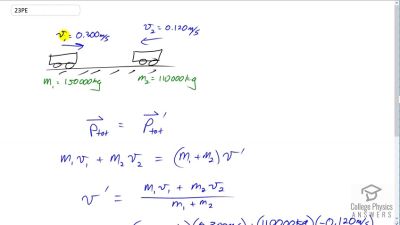 23PE
v₁ = 0.300 m/s
v₂ = 0.120 m/s
m₁ = 150000 kg
m₂ = 110000 kg
P⃗tot = P⃗tot'
m₁v₁ + m₂v₂ = (m₁+m₂) v'
v' = m₁v₁ + m₂v₂ / m₁ + m₂
College Physics
ANSWERS